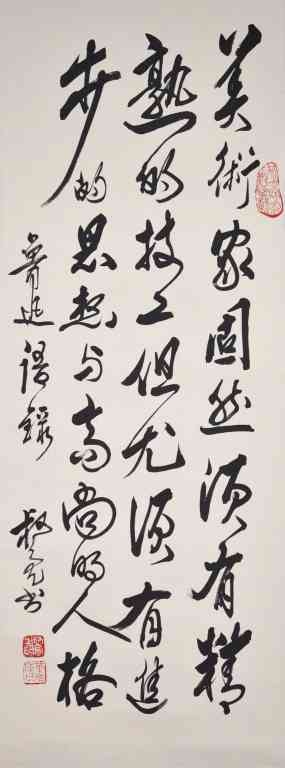 美術家固然須有精
熟的技工但尤須有進
步的思想与高尚的人格
魯迅語錄 叔亮书